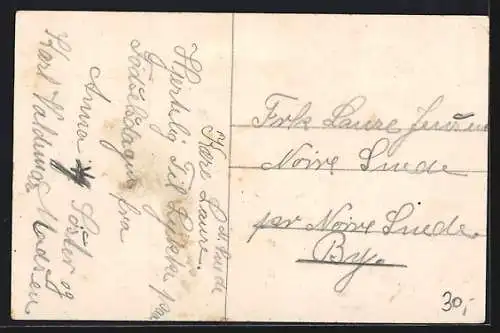 N. Lunde
Kære Laura.
Hjertelig Til Lykke paa
Födselsdagen fra
Anna Söster og
Karl Valdemar Madsen
Frk Laura Jensen
Nörre Lunde
per Nörre Lunde
By.
30,-